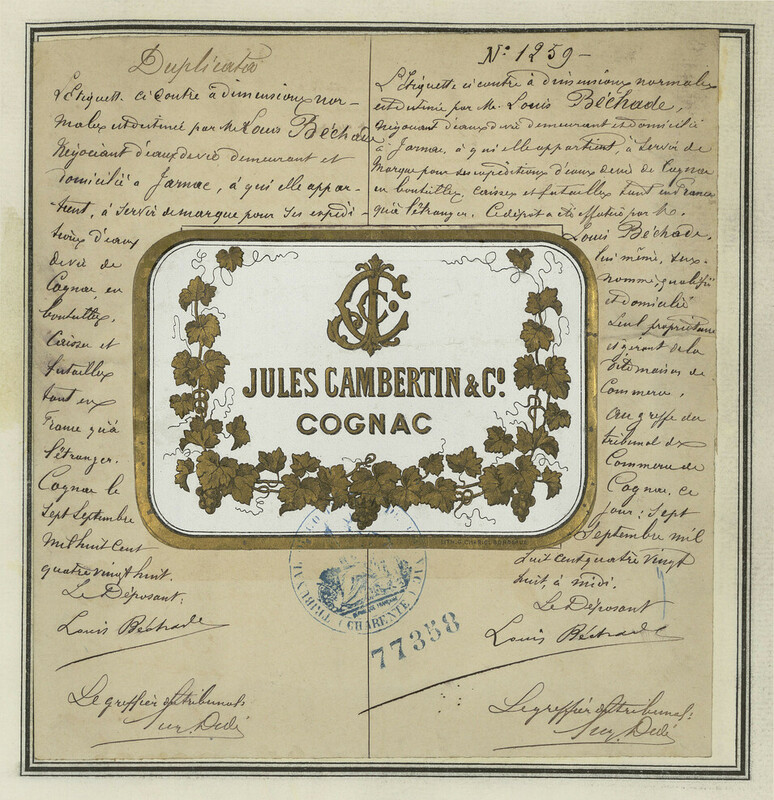 Duplicata
L'Etiquette ci contre à dimensions nor-
males est destinée par Mr Louis Béchade
Négociant d'eaux de vie demeurant et
domicilié à Jarnac, à qui elle appar-
tient, à servir de marque pour ses expédi-
tions d'eaux
de vie de
Cognac en
bouteilles,
Caisses et
futailles
tant en
France qu'à
l'étranger.
Cognac le
Sept Septembre
Mil huit Cent
quatre vingt huit.
Le Déposant:
Louis Béchade
Le greffier du tribunal:
N° 1259 -
L'Etiquette ci contre à dimensions normales
est destinée par Mr. Louis Béchade,
Négociant d'eaux de vie demeurant et domicilié
à Jarnac, à qui elle appartient, à servir de
Marque pour ses expéditions d'eaux de vie de Cognac
en bouteilles, caisses et futailles tant en France
qu'à l'étranger. Ce dépôt a été effectué par Mr.
Louis Béchade,
lui même, sus-
nommé, qualifié
et domicilié
Seul propriétaire
et gérant de la
dite maison de
Commerce,
au greffe du
tribunal de
Commerce de
Cognac, ce
jour: Sept
Septembre mil
huit cent quatre vingt
huit, à midi.
Le Déposant
Louis Béchade
Le greffier du tribunal:
JULES CAMBERTIN & Co.
COGNAC
TRIBUNAL DE COMMERCE DE COGNAC (CHARENTE)
77358